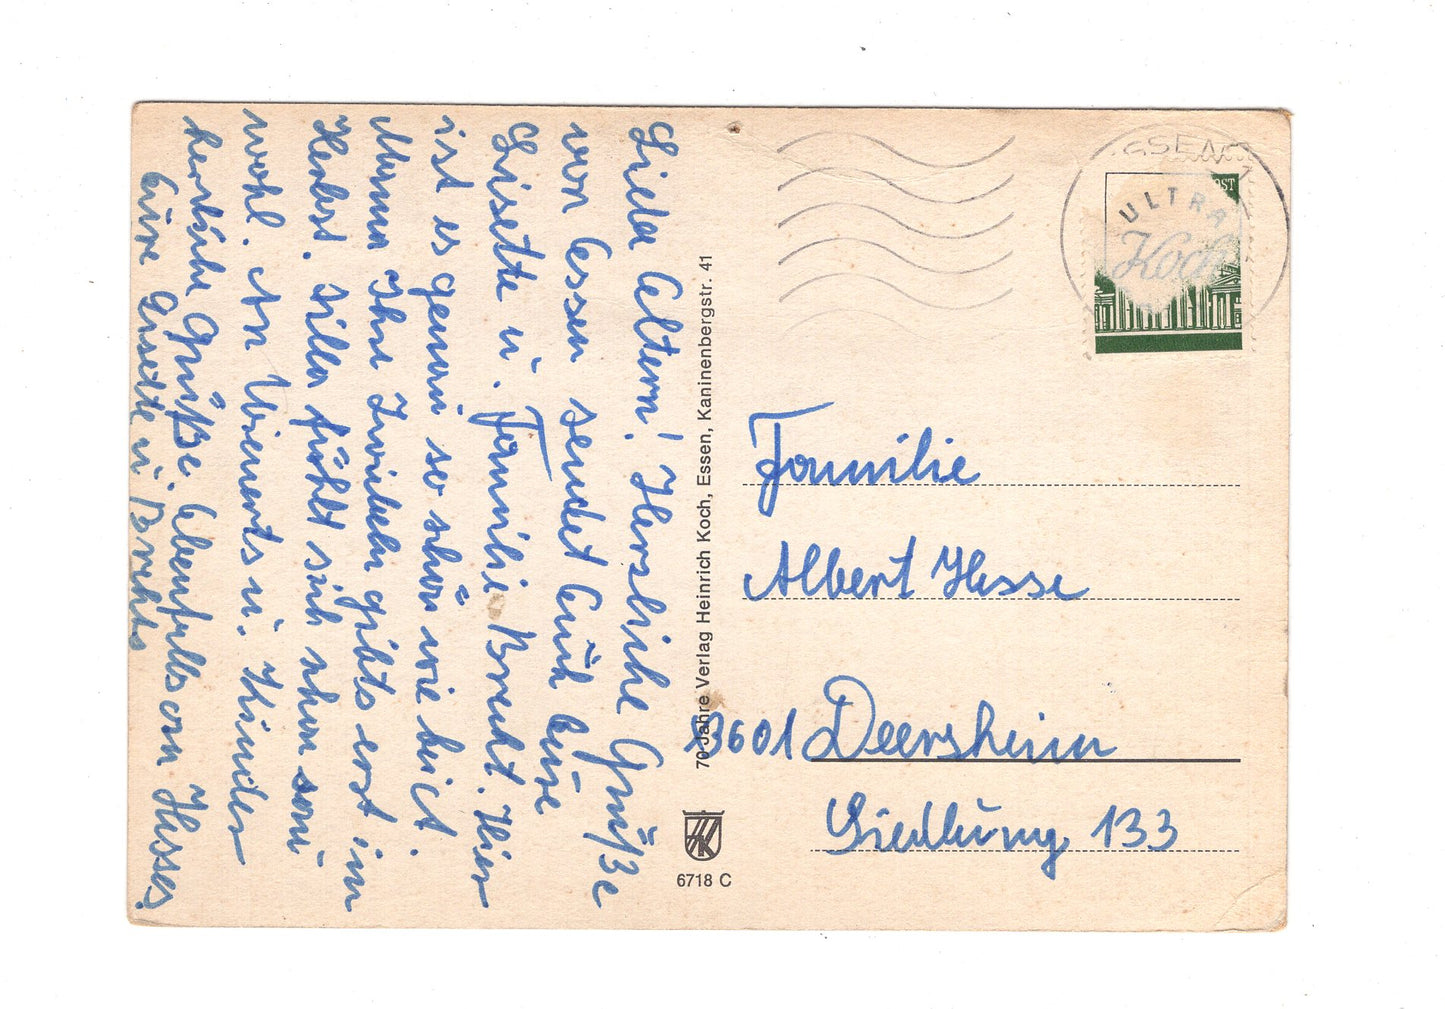 Liebe Eltern! Herzliche Grüße
von Essen sendet Euch Eure
Lisette u. Familie Brecht. Hier
ist es genau so schön wie bei
Ihre Zwiebeln gibts erst im
Herbst. Silla fühlt sich schon
wohl. An Wienerts u. Kinder
herzliche Grüße. Ebenfalls an Hesses.
Eure Lisette u. Brechts
70 Jahre Verlag Heinrich Koch, Essen, Kaninenbergstr. 41
6718 C
ULTRA
Koch
Familie
Albert Hesse
3601 Deersheim
Siedlung 133